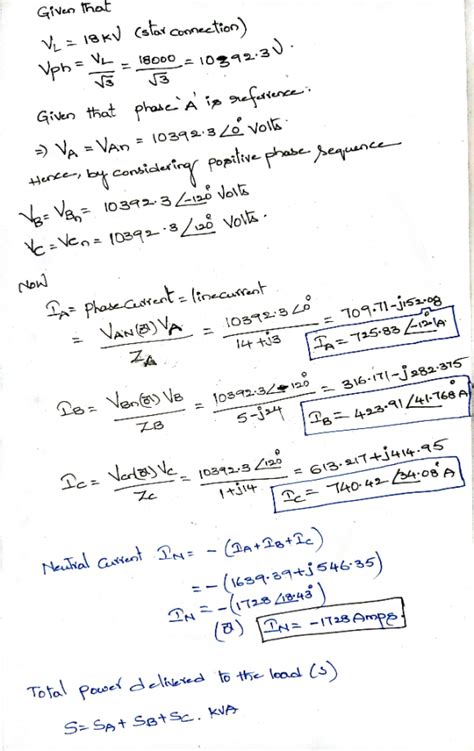 Given that
V_L = 18KV (star connection)
Vph = V_L/√3 = 18000/√3 = 10392.3V.
Given that phase 'A' is reference.
⇒ V_A = V_An = 10392.3∠0° Volts.
Hence, by considering positive phase sequence
V_B = V_Bn = 10392.3∠-120° Volts
V_C = V_cn = 10392.3∠120° Volts.
Now
I_A = phase current = line current
= V_AN (or) V_A / Z_A = 10392.3∠0° / 14+j3 = 709.71-j152.08
I_A = 725.83∠-12.1°A
I_B = V_Bn (or) V_B / Z_B = 10392.3∠-120° / 5-j24 = 316.171-j282.375
I_B = 423.91∠41.768°A
I_C = V_cn (or) V_C / Z_C = 10392.3∠120° / 1+j14 = 613.217+j414.95
I_C = 740.42∠34.08°A
Neutral Current I_N = -(I_A+I_B+I_C)
= -(1639.39+j546.35)
I_N = -(1728∠18.43°)
(or) I_N = -1728 Amps.
Total power delivered to the load (S)
S = S_A + S_B + S_C . KVA